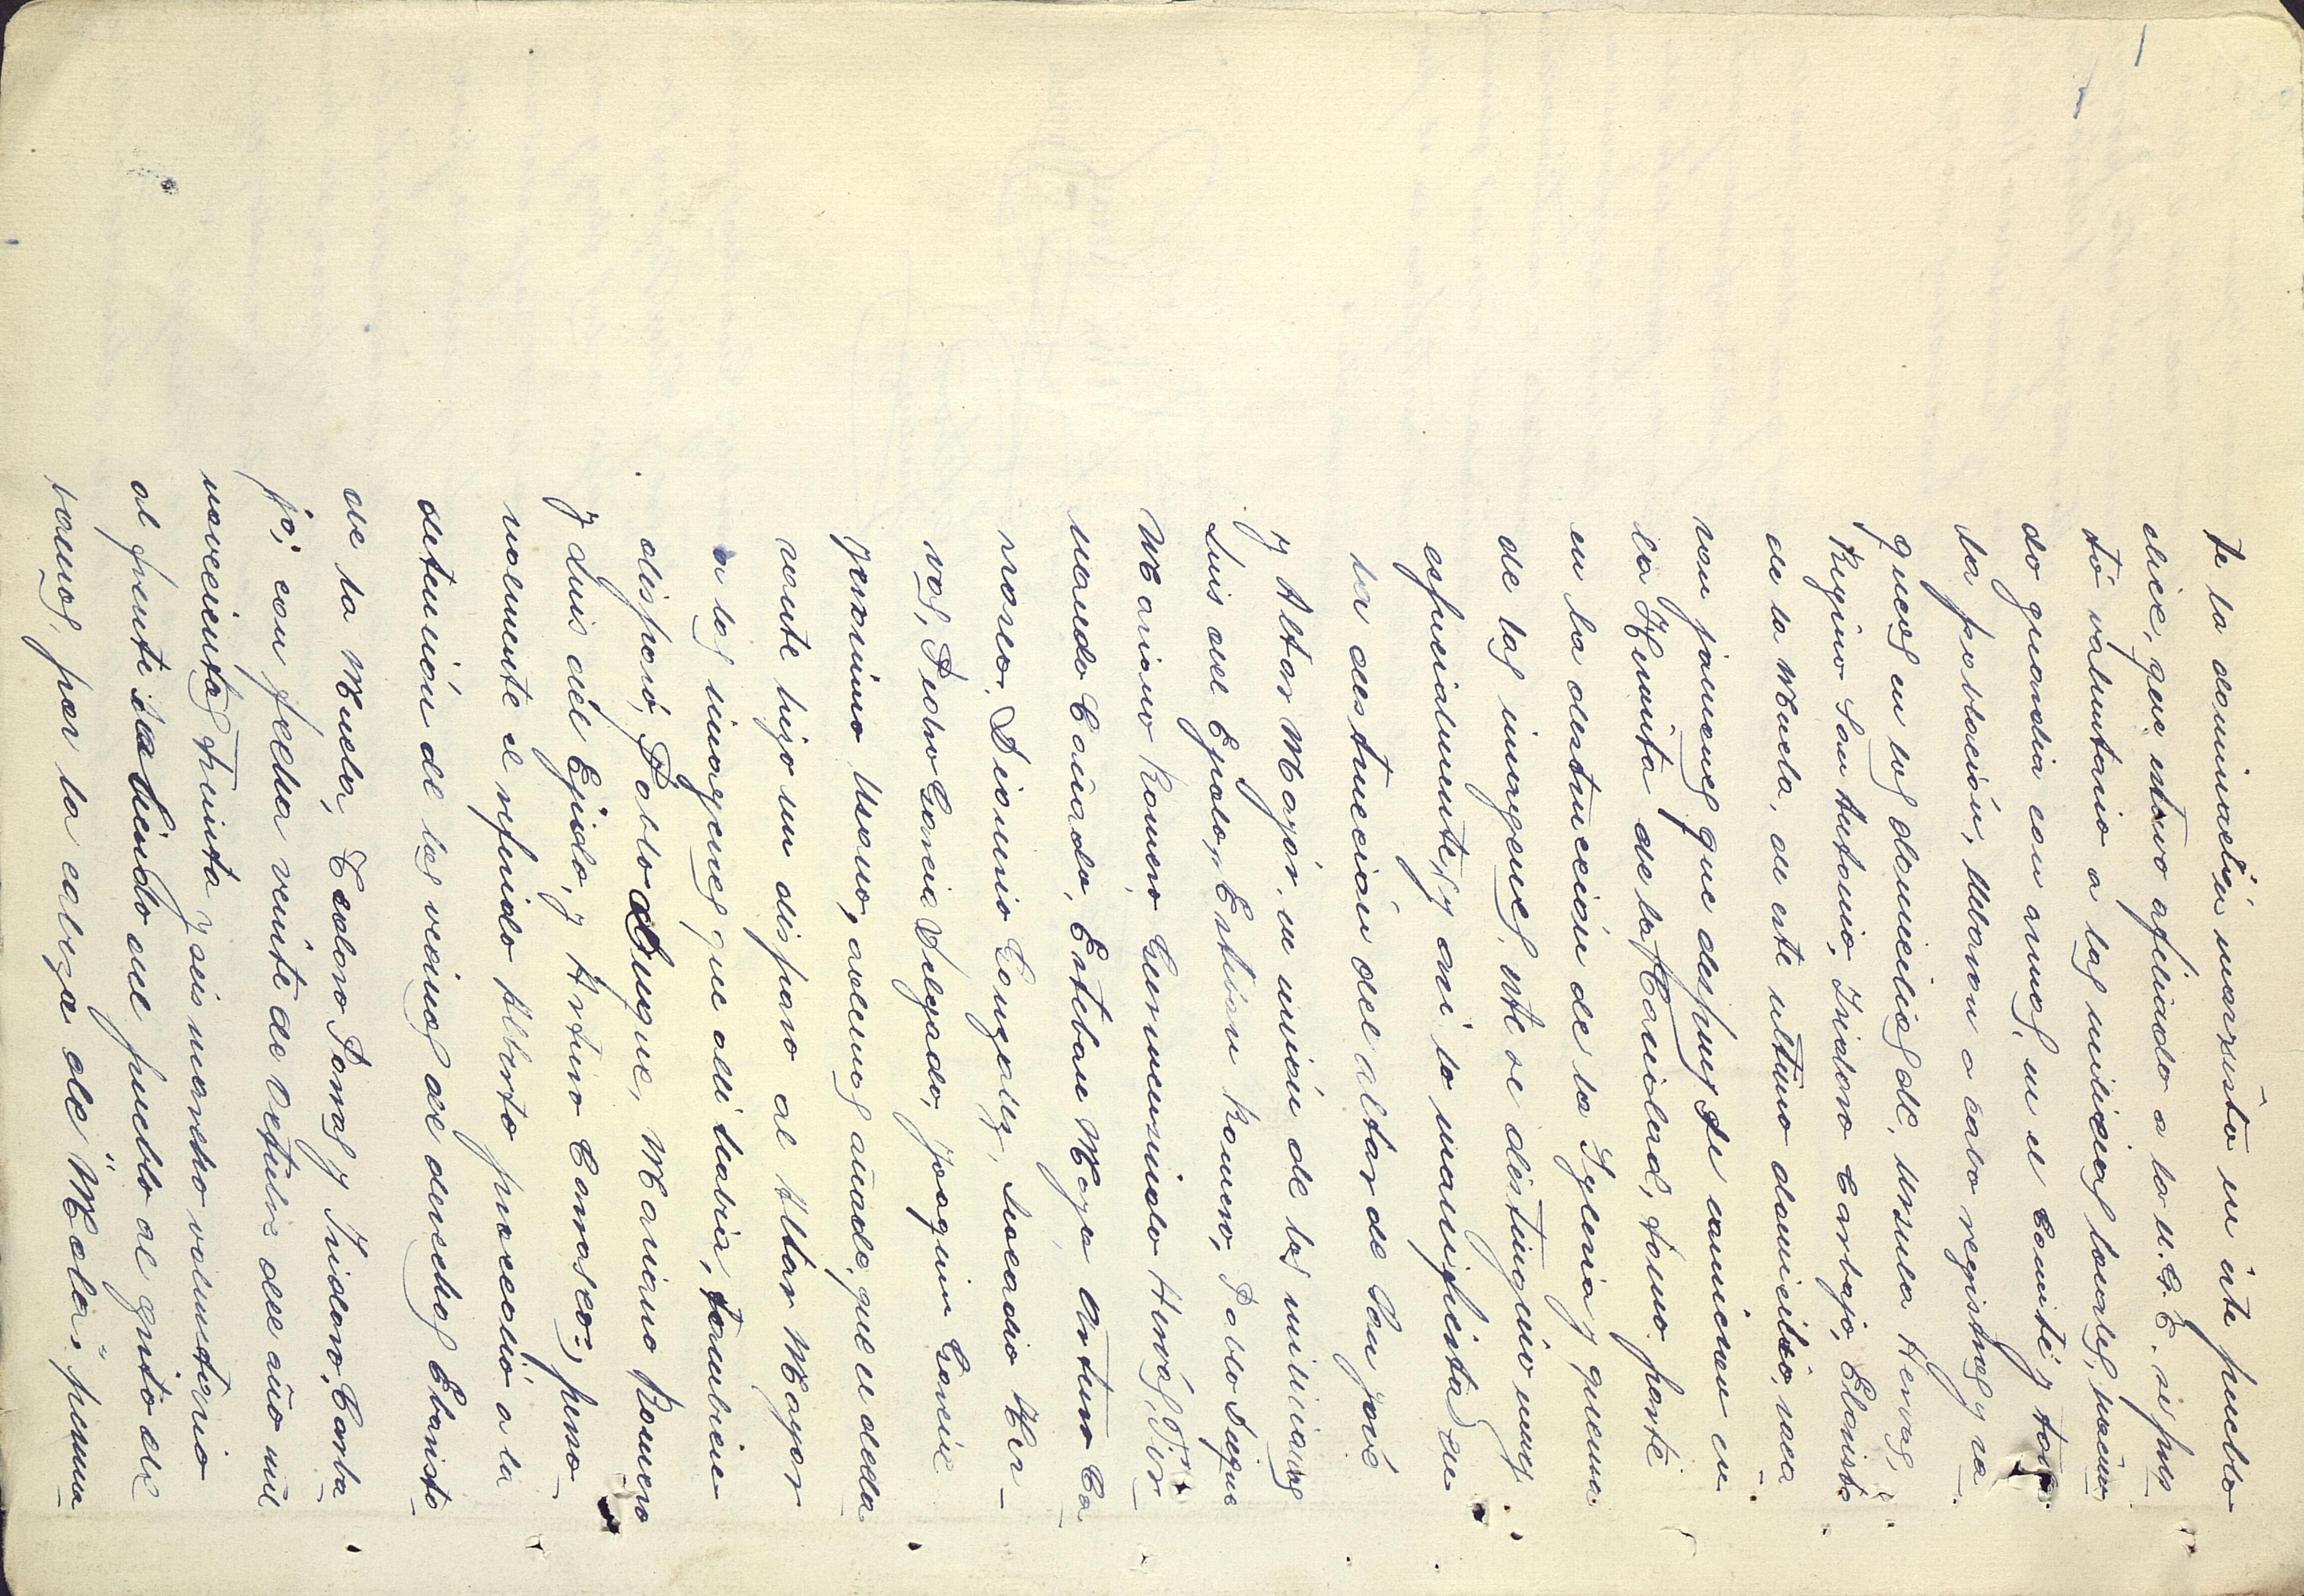 te la dominación marxista en este pueblo
dice, que estuvo afiliado a la U.G.T. se pres
tó voluntario a las milicias locales, hacien
do guardia con armas, en el Comité y toda
la población, llevaron a cabo registros y sa
queos en los domicilios de, Ursula Hervas,
Regino San Antonio, Isidoro Carbajo, Elavisto
de la Muela, de este ultimo domicilio, saca
ron jamones que despues se comieron en
la Hermita de la Caridad, tomo parte
en la destrucción de la Iglesia y quema
de las imagenes, este se distinguió muy
especialmente, y asi lo manifiesta, en
la destrucción del altar de San José
y Altar Mayor, en unión de los milicianos
Luis del Egido, Esteban Romero, Pablo Duque
Mariano Romero, Gumersindo Hervás, Fer
nando Cañada, Esteban Moya Arturo Ca
rrasco, Dionisio González, Leocadio Her-
vas, Pedro Garcia Delgado, Joaquin Garcia
Jeronimo Usano, ademas añade, que el decla
rante hizo un disparo al Altar Mayor
a las imagenes que alli habia, tambien
disparó, Pablo Duque, Mariano Romero
y Luis del Egido, y Arturo Carrasco=, perso
nalmente el referido Alberto procedió a la
detención de los vecinos de derechas Elavisto
de la Muela, Teodoro Pomas y Isidoro, Carba
jo; con fecha veinte de Octubre del año mil
novecientos treinta y seis marcho voluntario
al frente saliendo del pueblo al grito de
vamos, por la cabeza de "Mola", perma